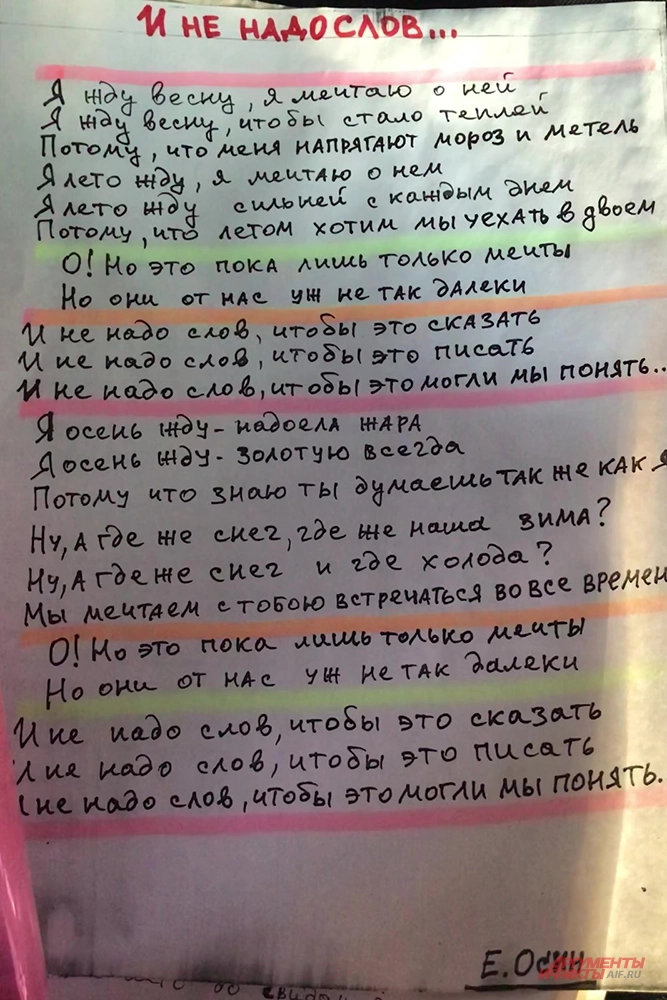 И НЕ НАДО СЛОВ...
Я жду весну, я мечтаю о ней
Я жду весну, чтобы стало теплей
Потому, что меня НАПРЯГАЮТ мороз и метель
Я лето жду, я мечтаю о нем
Я лето жду сильней с каждым днем
Потому, что летом хотим мы уехать в двоем
О! Но это пока лишь только мечты
Но они от нас уж не так далеки
И не надо слов, чтобы это сказать
И не надо слов, чтобы это писать
И не надо слов, чтобы это могли мы понять..
Я осень жду - надоела жара
Я осень жду - золотую всегда
Потому что знаю ты думаешь так же как я
Ну, а где же снег, где же наша зима?
Ну, а где же снег и где холода?
Мы мечтаем с тобою встречаться во все времен
О! Но это пока лишь только мечты
Но они от нас уж не так далеки
И не надо слов, чтобы это сказать
И не надо слов, чтобы это писать
И не надо слов, чтобы это могли мы понять.
Е. Осин
АРГУМЕНТЫ
ФАКТЫ AIF.RU